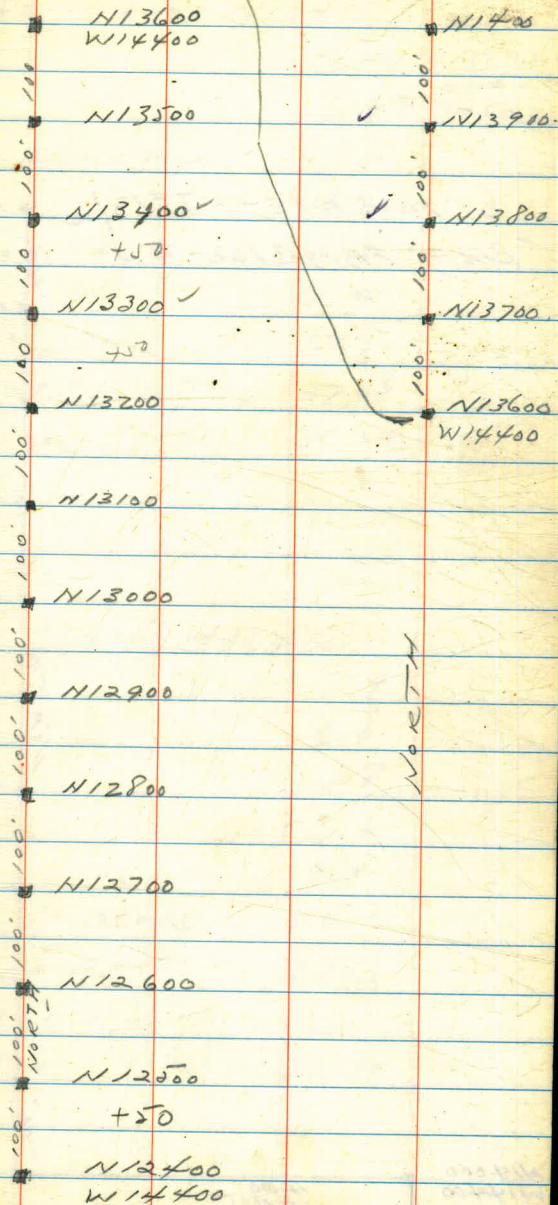 N13600
W14400
100
N13500
100'
N13400 ✓
+50
100
N13300 ✓
+50
100
N13200
100'
N13100
100
N13000
100'
N12900
100'
N12800
100'
N12700
100'
N12600
NORTH
100'
N12500
+50
100'
N12400
W14400
N1400
100'
✓ N13900
100'
✓ N13800
100'
N13700
100'
N13600
W14400
NORTH